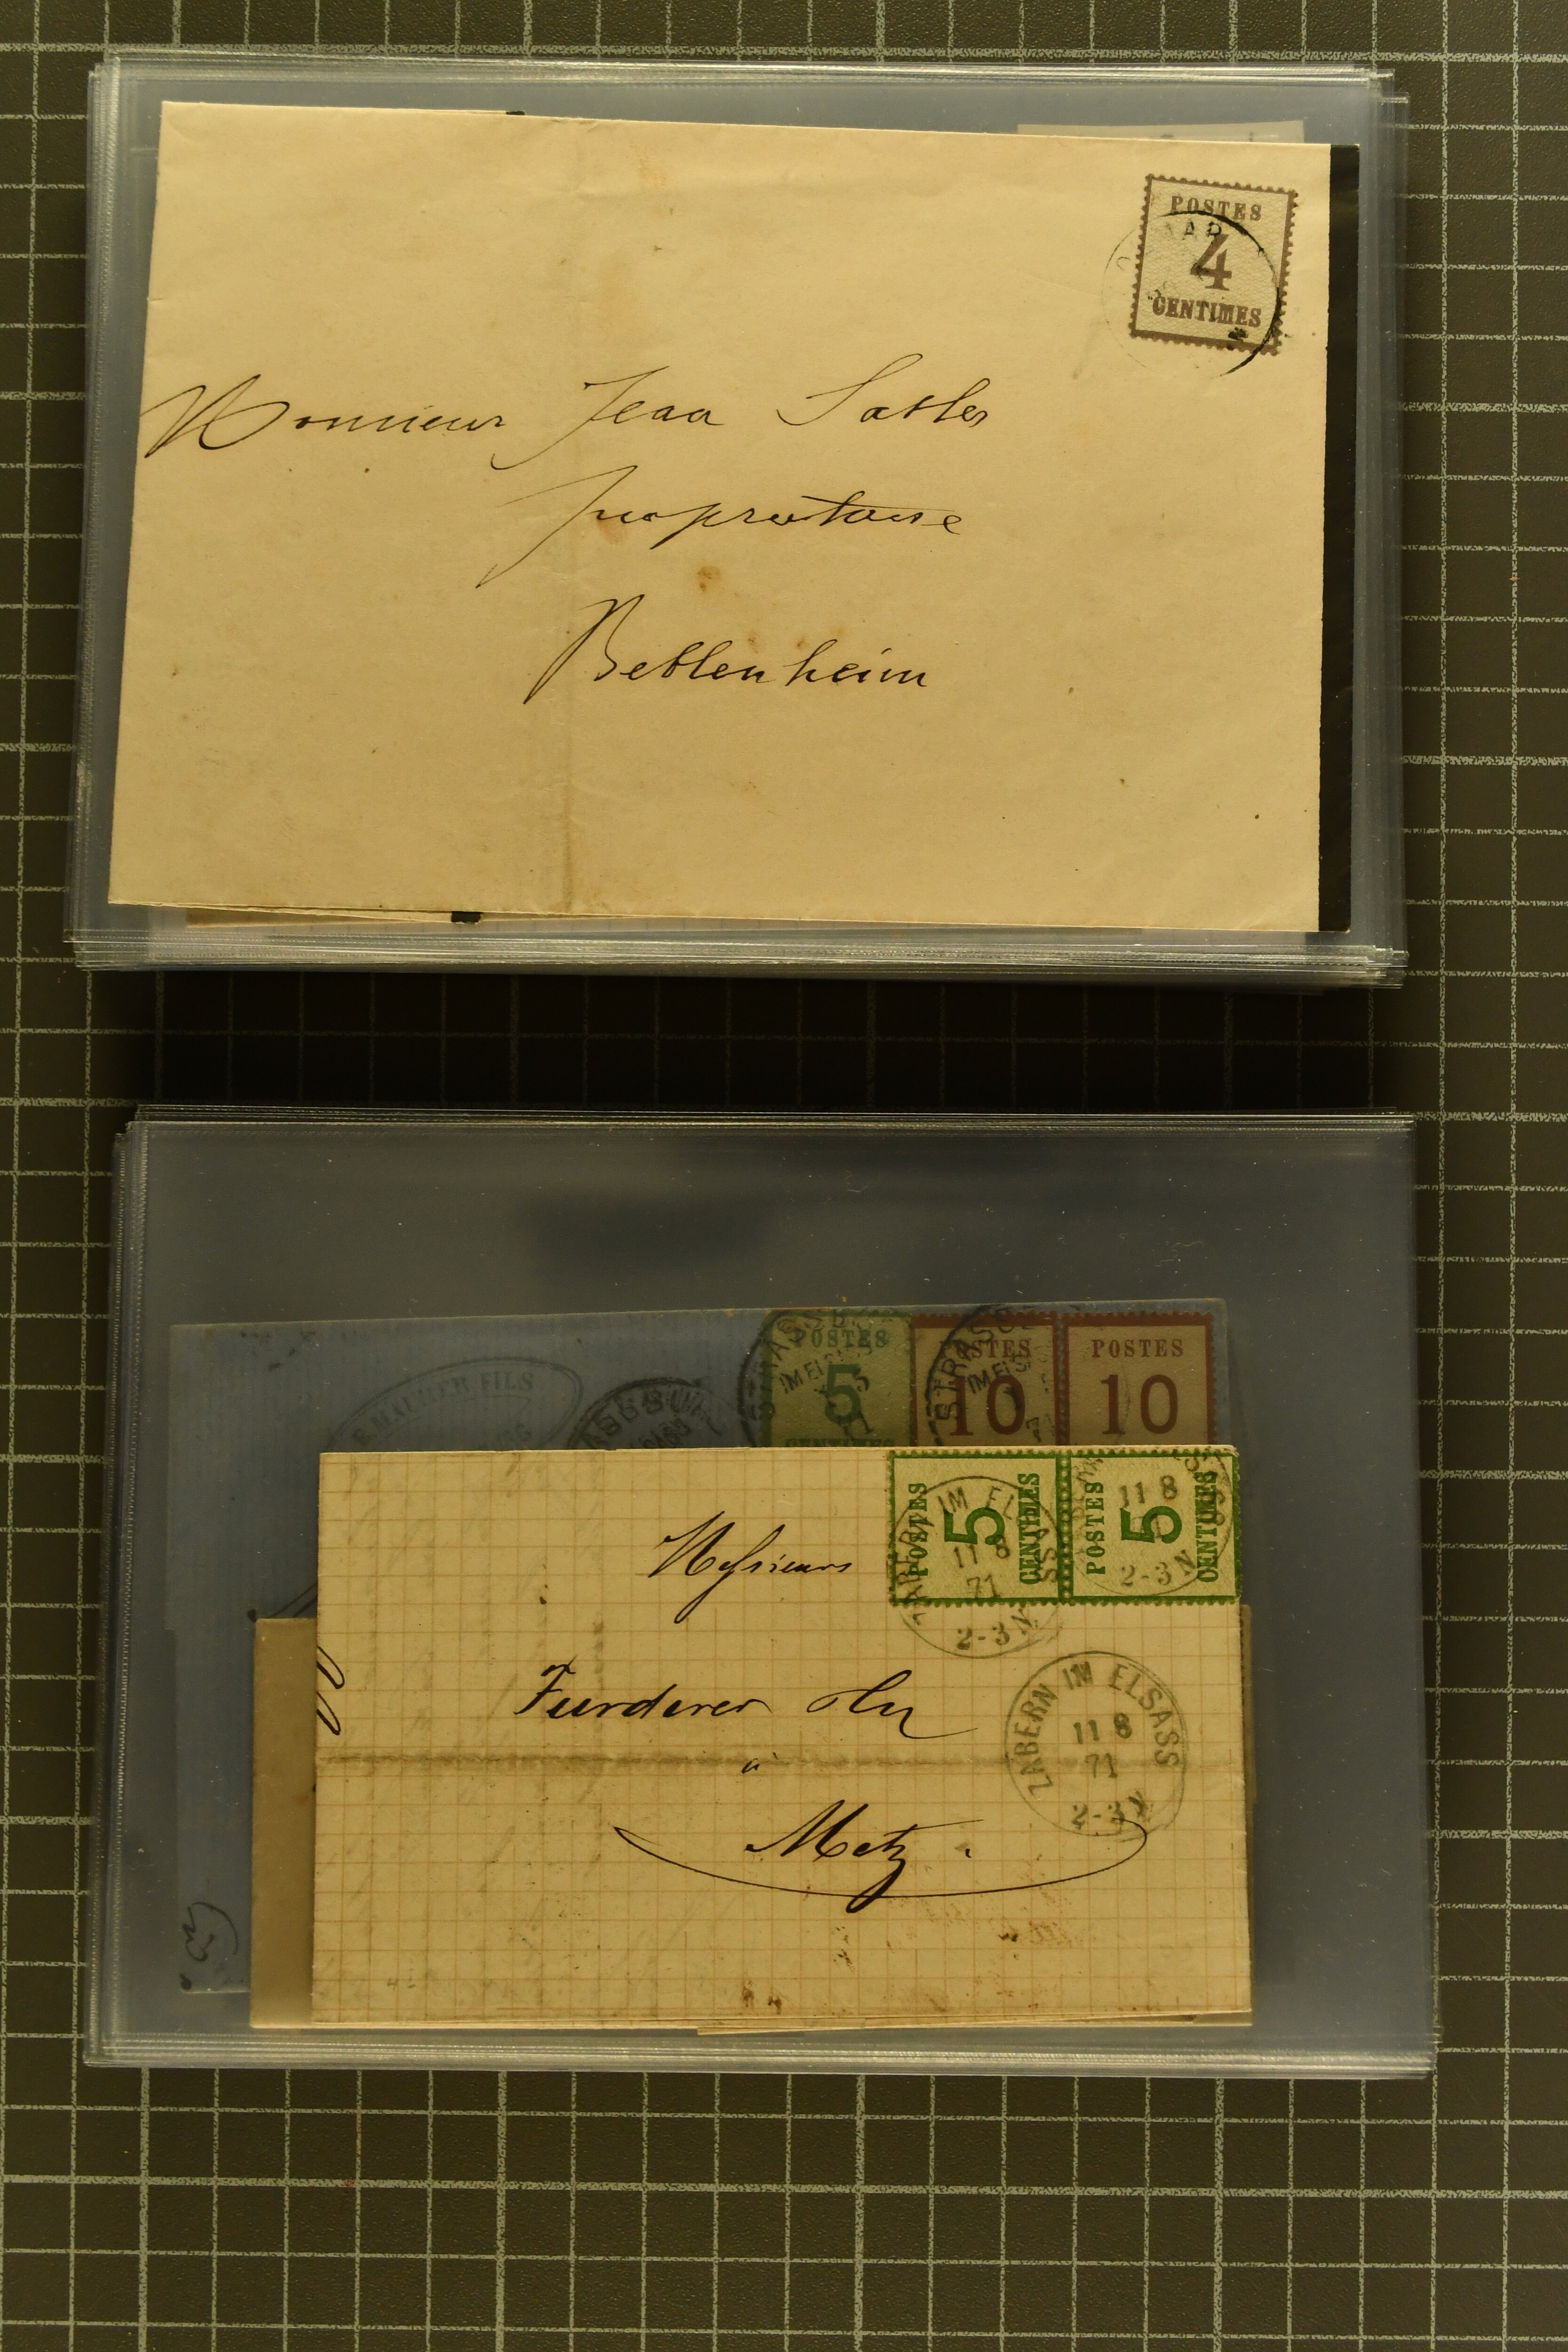 POSTES
4
CENTIMES
Monsieur Jean
propriétaire
Beblenheim
POSTES
5
STRASSBURG
IM ELSASS
POSTES
10
POSTES
10
FILS
POSTES
5
CENTIMES
POSTES
5
CENTIMES
ZABERN IM ELSASS
11 8
71
2-3 N
11 8
2-3 N
Messieurs
Furderer
à
Metz.
ZABERN IM ELSASS
11 8
71
2-3 N